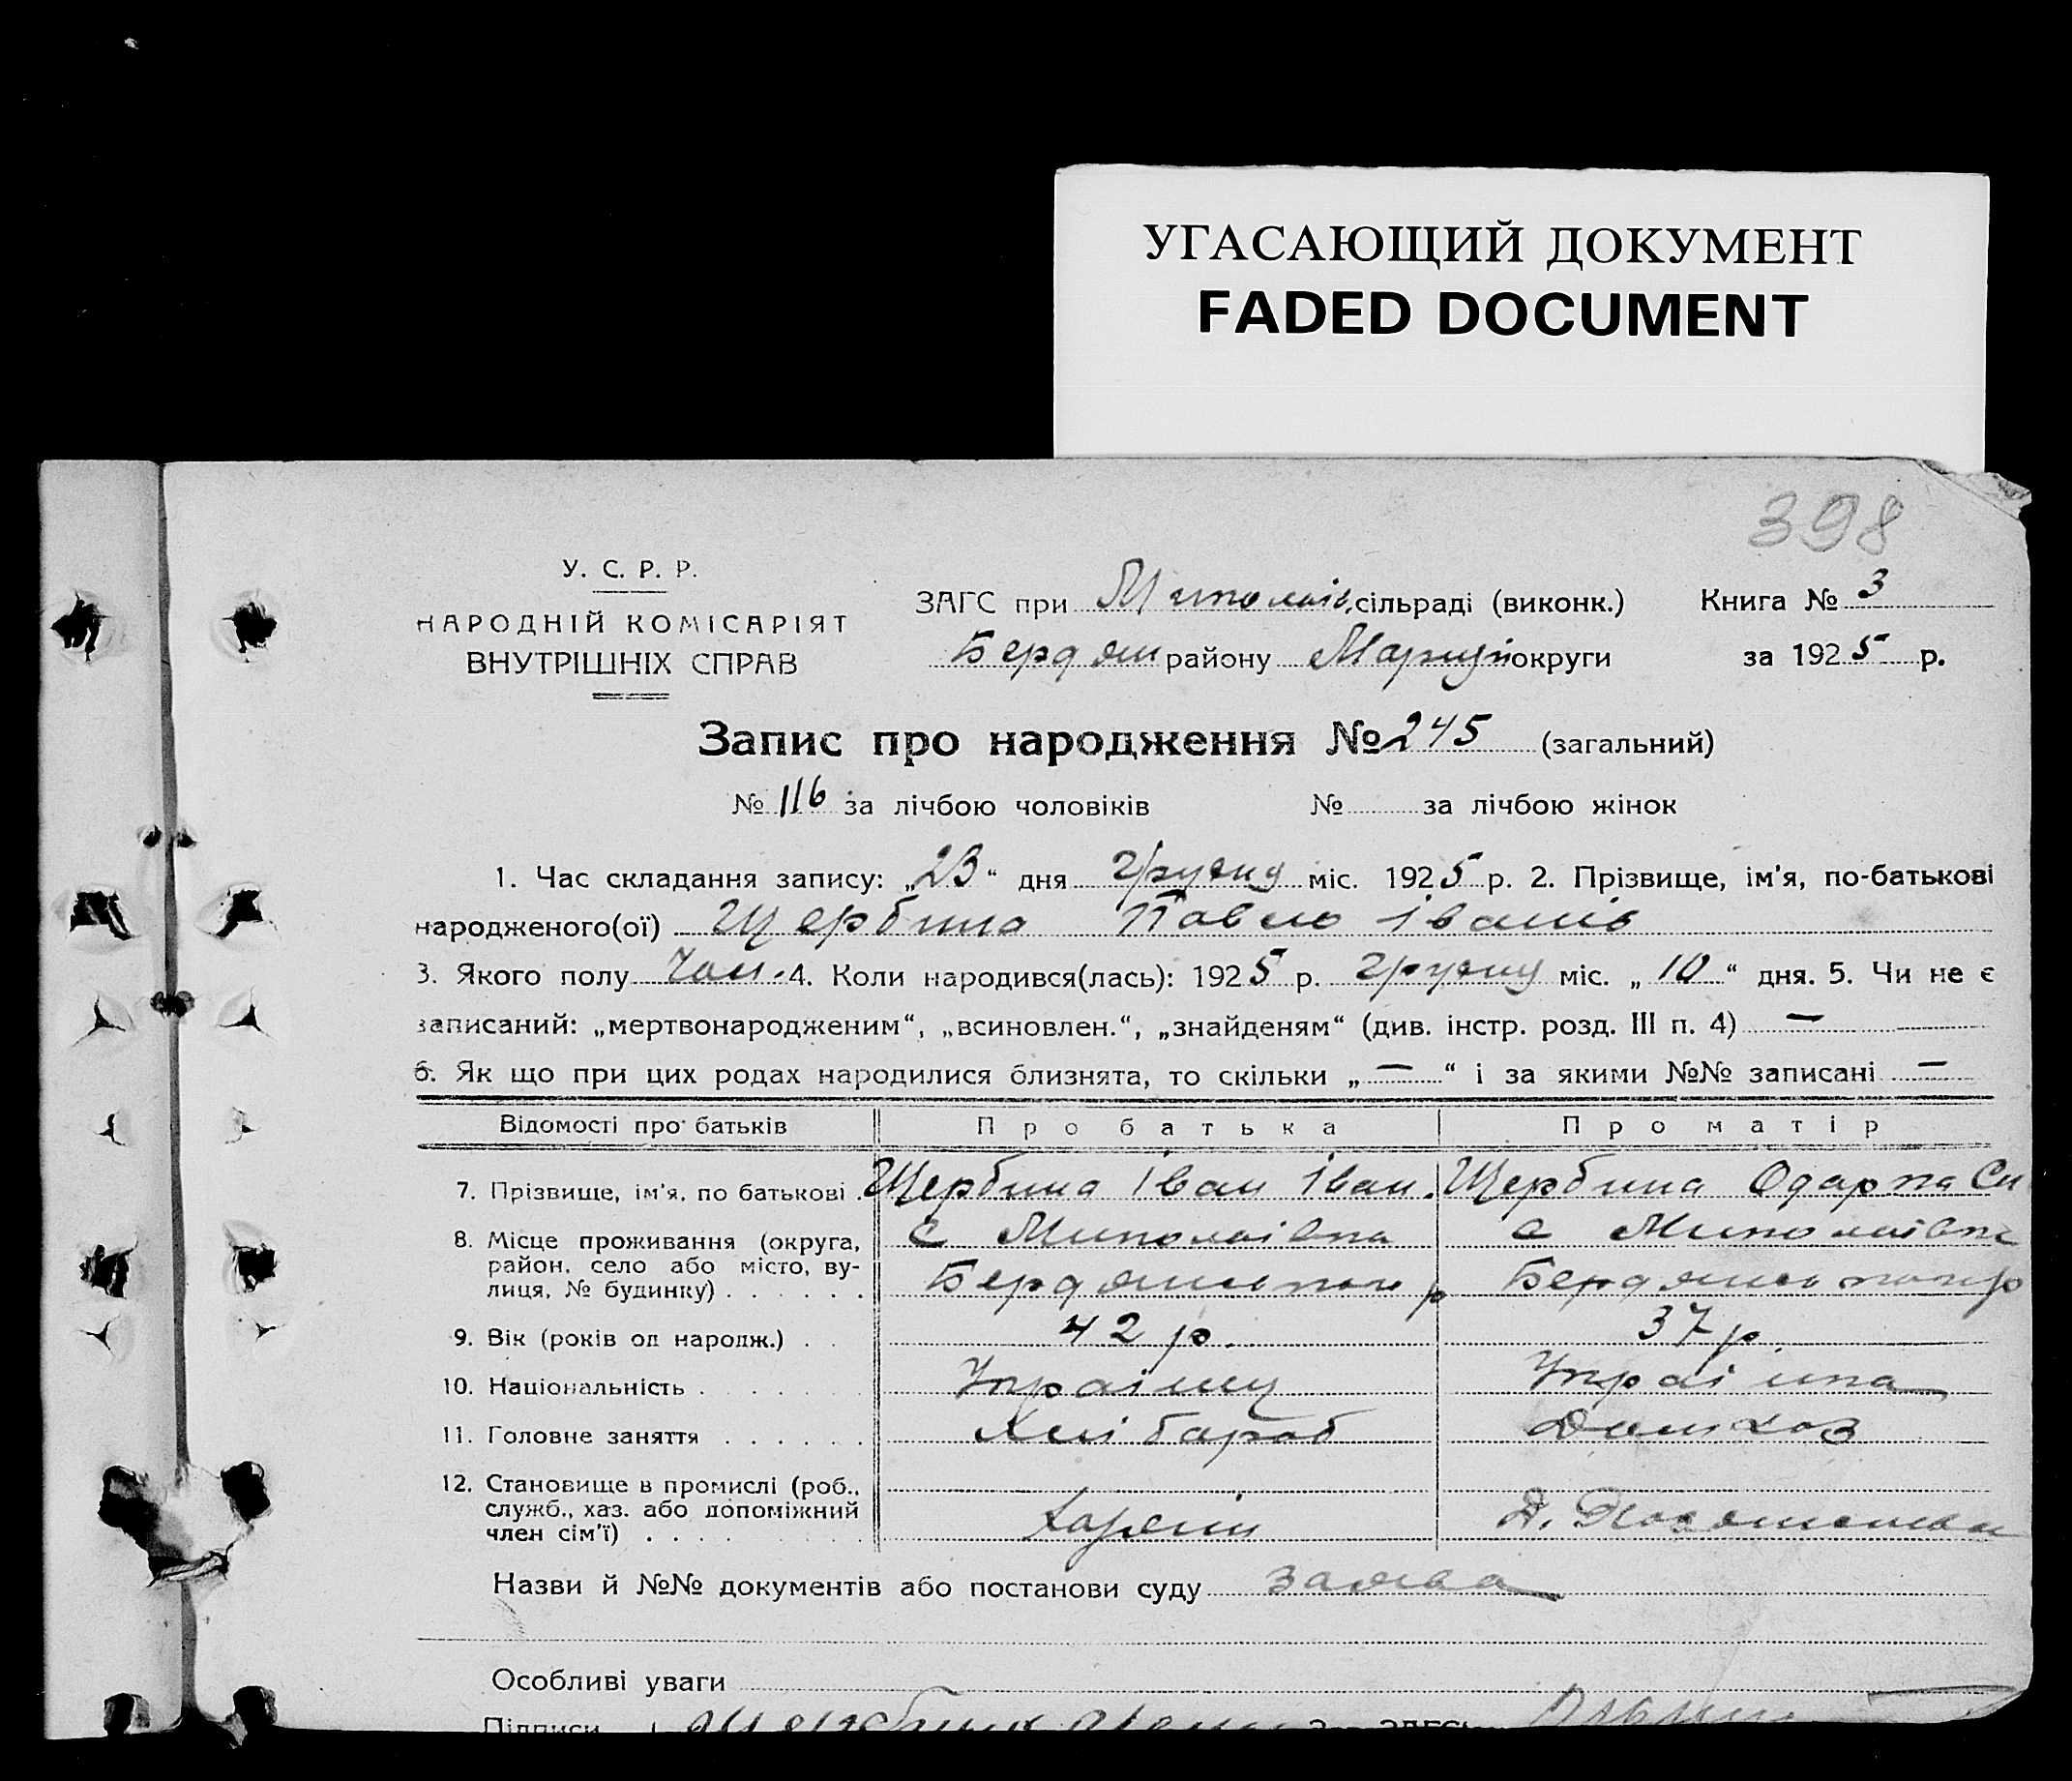 УГАСАЮЩИЙ ДОКУМЕНТ
FADED DOCUMENT
398
У. С. Р. Р.
НАРОДНІЙ КОМІСАРІЯТ
ВНУТРІШНІХ СПРАВ
ЗАГС при Миколаїв. сільраді (виконк.) Книга № 3
Бердян району Маріуп округи за 1925 р.
Запис про народження № 245 (загальний)
№ 116 за лічбою чоловіків № за лічбою жінок
1. Час складання запису: „23“ дня Грудня міс. 1925 р. 2. Прізвище, ім'я, по-батькові
народженого(ої) Щербина Павло Іванів
3. Якого полу Чол. 4. Коли народився(лась): 1925 р. Грудня міс. „10“ дня. 5. Чи не є
записаний: „мертвонародженим“, „всиновлен.“, „знайденям“ (див. інстр. розд. III п. 4) —
6. Як що при цих родах народилися близнята, то скільки „—“ і за якими №№ записані —
Відомості про батьків Про батька Про матір
7. Прізвище, ім'я, по батькові . Щербина Іван Іван. Щербина Одарка Си
8. Місце проживання (округа, район, село або місто, вулиця, № будинку) . . . . . . с Миколаївка с Миколаївка
Бердянського р Бердянського р
9. Вік (років од народж.) . . 42 р. 37 р.
10. Національність . . . . . . . Українц Українка
11. Головне заняття . . . . . . Хлібароб Домхоз
12. Становище в промислі (роб., служб., хаз. або допоміжний член сім'ї) . . . . Хазяїн Д.
Назви й №№ документів або постанови суду заява
Особливі уваги
Підписи Щербина